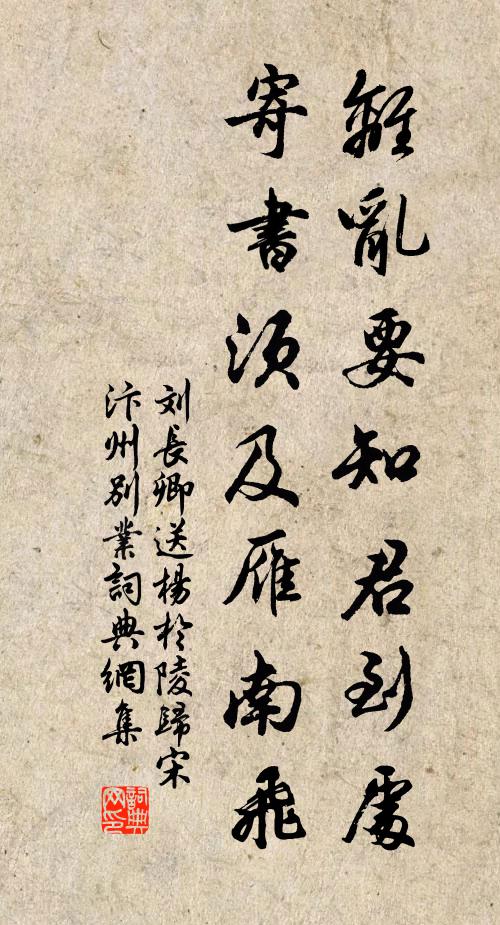 離亂要知君到處
寄書須及雁南飛
刘長卿送楊於陵歸宋
汴州別業詞典網集
詞典
网印